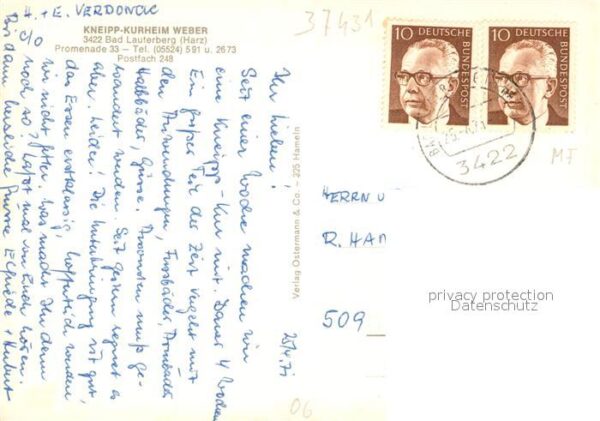 H. + E. VERDONCK
KNEIPP-KURHEIM WEBER
3422 Bad Lauterberg (Harz)
Promenade 33 — Tel. (05524) 591 u. 2673
Postfach 248
25/4.71
Ihr Lieben!
Seit einer Woche machen wir
eine Kneipp-Kur mit. Dauer 4 Wochen
Ein großer Teil der Zeit vergeht mit
den Anwendungen, Fussbäder, Armbäder
Halbbäder, Güsse. Ansonsten muß ge-
wandert werden. Seit gestern regnet es
aber. Leider! Die Unterbringung ist gut,
das Essen erstklassig, hoffentlich werden
wir nicht fetter. Was macht Ihr denn
so? Lasst mal von Euch hören.
Bis dann liebe Grüsse Elfriede + Hubert
Verlag Ostermann & Co. — 325 Hameln
37431
10 DEUTSCHE BUNDESPOST
10 DEUTSCHE BUNDESPOST
3422
MF
HERRN U
R. HAN
509
06
privacy protection
Datenschutz